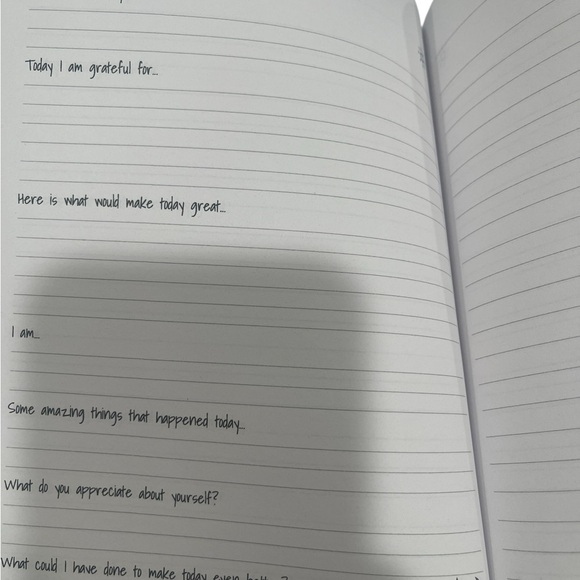 Today I am grateful for...
Here is what would make today great...
I am...
Some amazing things that happened today...
What do you appreciate about yourself?
What could I have done to make today even better?